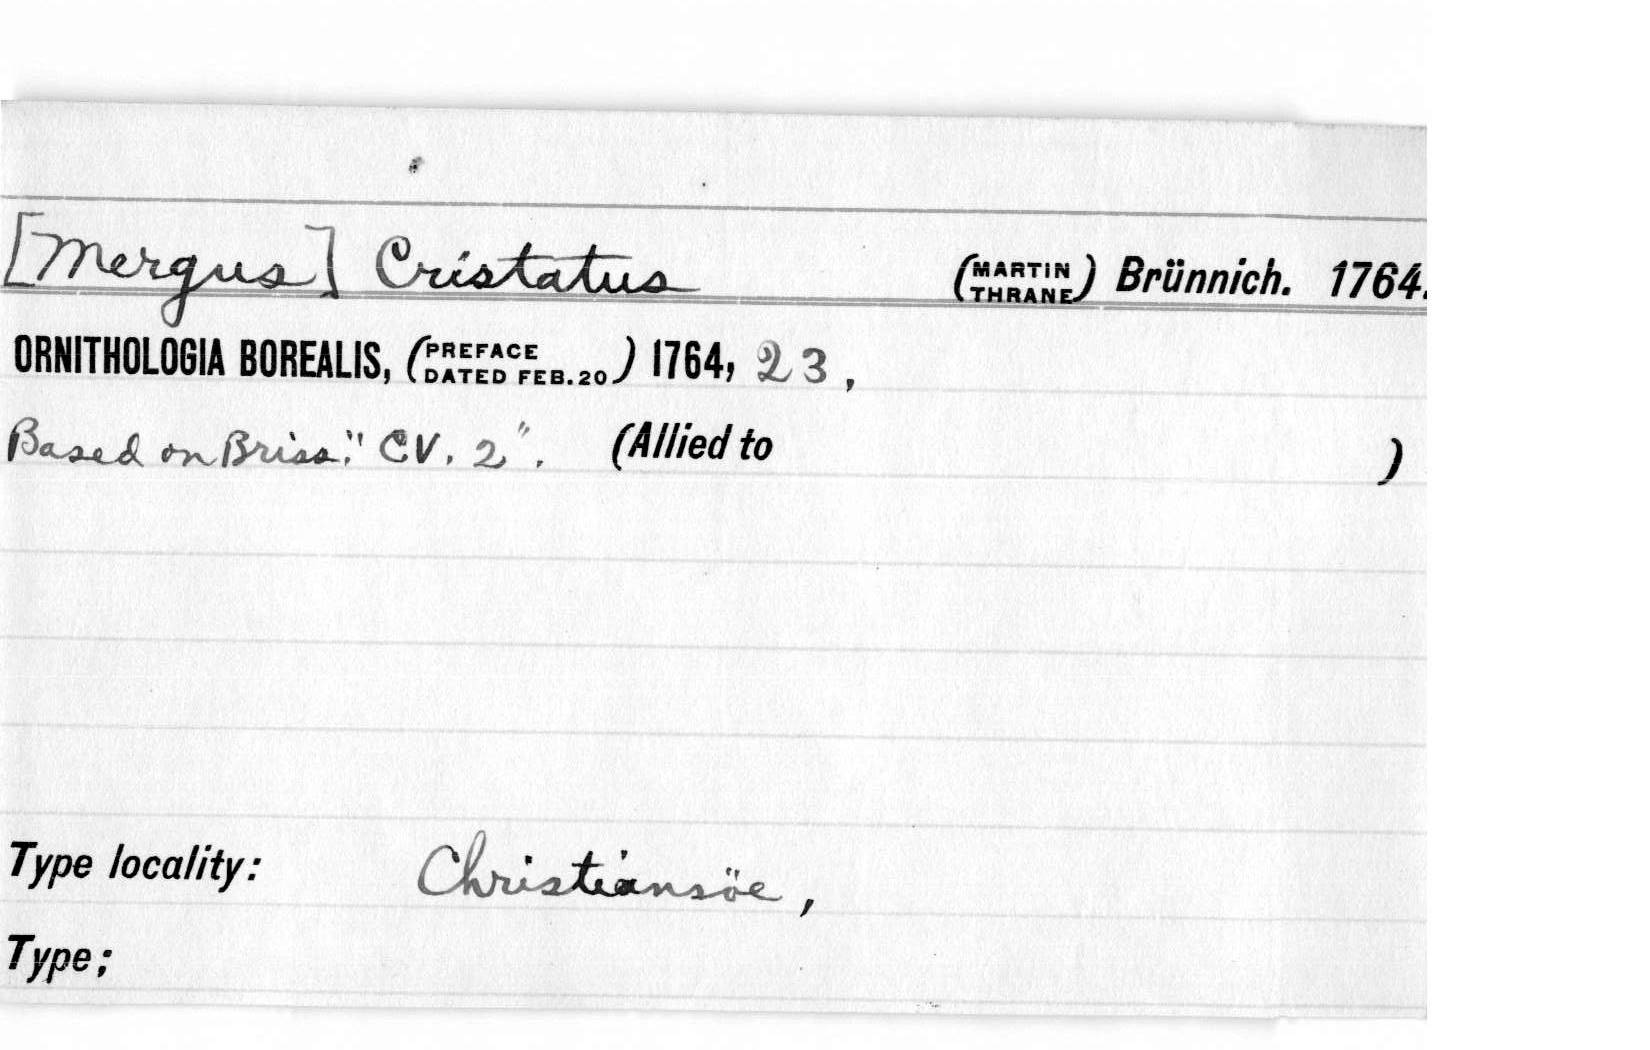 [Mergus] Cristatus (MARTIN THRANE) Brünnich. 1764.
ORNITHOLOGIA BOREALIS, (PREFACE DATED FEB. 20) 1764, 23,
Based on Briss. "CV. 2". (Allied to )
Type locality: Christiansöe,
Type;